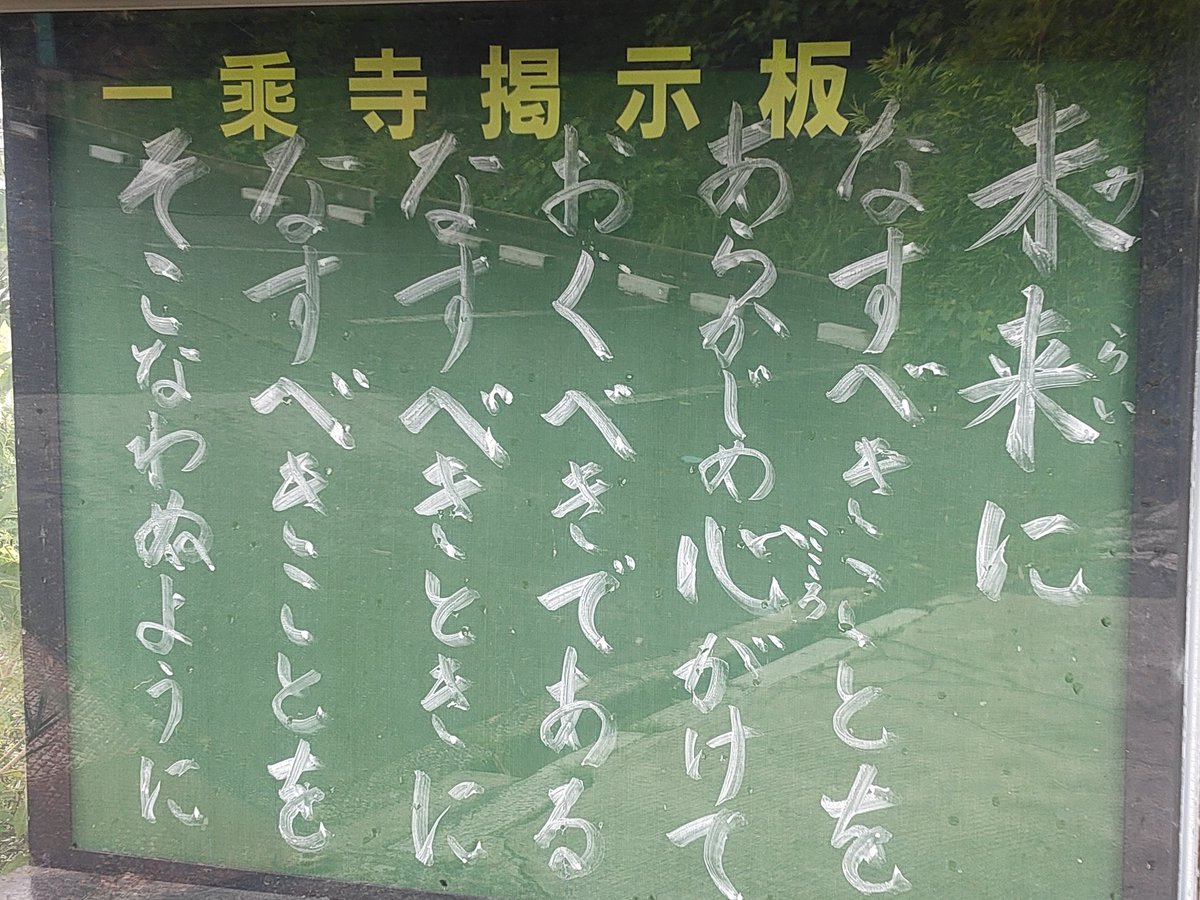 一乗寺掲示板
未来に
みらい
なすべきことを
あらかじめ心がけて
こころ
おくべきである
なすべきときに
なすべきことを
そこなわぬように